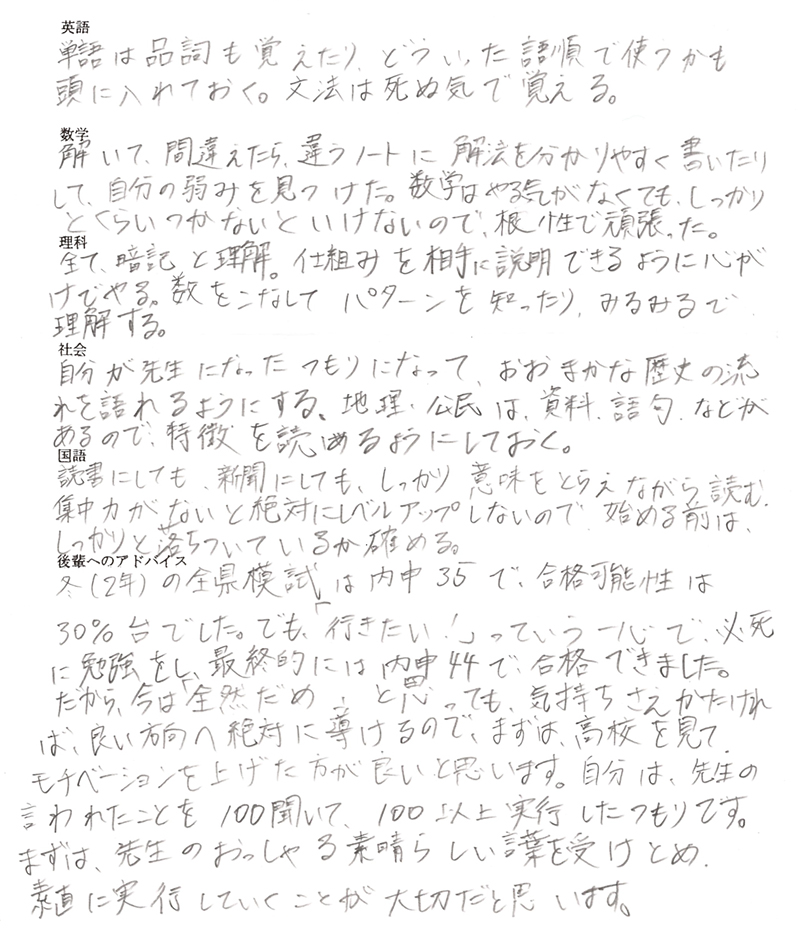 英語
単語は品詞も覚えたり、どういった語順で使うかも
頭に入れておく。文法は死ぬ気で覚える。
数学
解いて、間違えたら、違うノートに解法を分かりやすく書いたり
して、自分の弱みを見つけた。数学はやる気がなくても、しっかり
とくらいつかないといけないので、根性で頑張った。
理科
全て、暗記と理解。仕組みを相手に説明できるように心が
けでやる。数をこなしてパターンを知ったり、みるみるで
理解する。
社会
自分が先生になったつもりになって、おおまかな歴史の流
れを語れるようにする。地理・公民は、資料、語句、などが
あるので、特徴を読めるようにしておく。
国語
読書にしても、新聞にしても、しっかり意味をとらえながら、読む。
集中力がないと絶対にレベルアップしないので、始める前は、
しっかりと落ちついているか確める。
後輩へのアドバイス
冬(2年)の全県模試は内申35で、合格可能性は
30%台でした。でも、「行きたい!」っていう一心で、必死
に勉強をし、最終的には内申44で、合格できました。
だから、今は「全然だめ…」と思っても、気持ちさえかたけれ
ば、良い方向へ絶対に導けるので、まずは、高校を見て、
モチベーションを上げた方が良いと思います。自分は、先生の
言われたことを100聞いて、100以上実行したつもりです。
まずは、先生のおっしゃる素晴らしい言葉を受けとめ、
素直に実行していくことが大切だと思います。